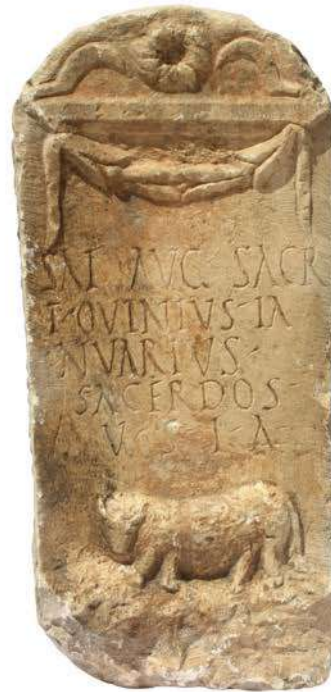 SAT AVG SACR
P OVINIVS IA
NVARIVS
SACERDOS
V S L A